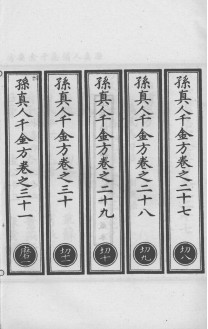 孫真人千金方卷之二十七
切八
孫真人千金方卷之二十八
切九
孫真人千金方卷之二十九
切十
孫真人千金方卷之三十
孫真人千金方卷之三十一